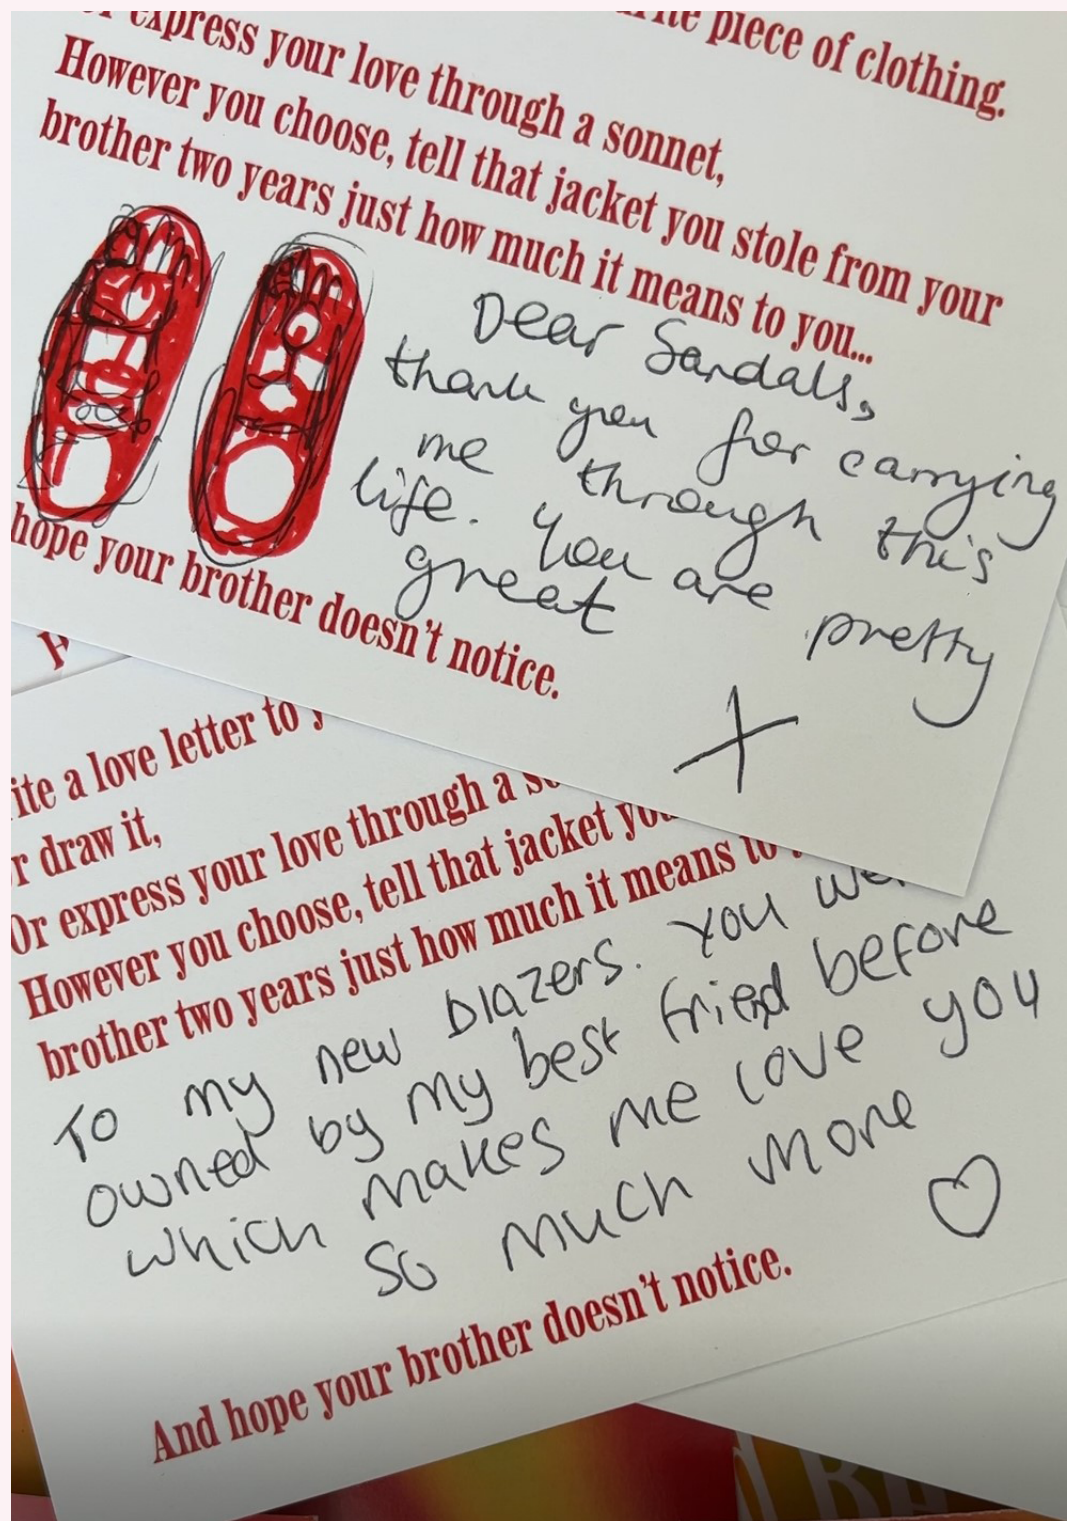 piece of clothing.
express your love through a sonnet,
However you choose, tell that jacket you stole from your
brother two years just how much it means to you...
Dear Sandals,
thank you for carrying
me through this
life. You are pretty
great
X
hope your brother doesn't notice.
a love letter to
draw it,
Or express your love through a
However you choose, tell that jacket
brother two years just how much it means to
To my new blazers. You
owned by my best friend before
which makes me love you
so much more
And hope your brother doesn't notice.